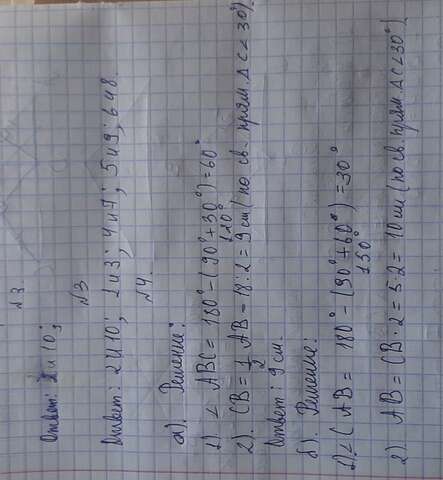 №3
Ответ: 2 и 10;
№3
Ответ: 2 и 10; 2 и 3; 4 и 7; 5 и 9; 6 и 8.
№4.
а). Решение:
1) ∠ ABC = 180° - (90° + 30°) = 60°
120°
2). CB = 1/2 AB = 18 : 2 = 9 см (по св. прям. Δ С ∠ 30°)
Ответ: 9 см.
б). Решение:
1) ∠ CAB = 180° - (90° + 60°) = 30°
150°
2). AB = CB · 2 = 5 · 2 = 10 см (по св. прям. Δ С ∠ 30°)